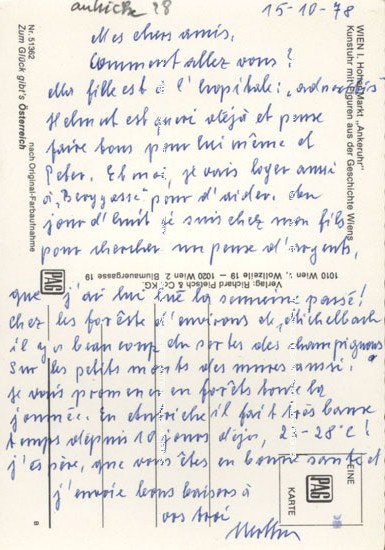 autriche 78
15-10-78
Mes chers amis,
Comment allez vous?
Ma fille est à l'hopital:
Helmut est gueri déjà et pense
faire tous pour lui même et
Peter. Et moi, je vais loger aussi
à, Berggasse pour d'aider.
jour d'huit je suis chez mon fils
pour chercher un peuse d'argents,
que j'ai lui la semaine passé!
Chez les forêts d'environs de
il y a beaucoup du sortes des champignons
Sur les petits monts des mures aussi.
Je vais promener en forêts toute la
journée. En autriche il fait très beaux
temps depuis 10 jours déjà, 23-28°C!
j'éspère, que vous êtes en bonne santé et
j'envoie tous baisers à
vos troi
Nr. 51362
Zum Glück gibt's Österreich
nach Original-Farbaufnahme
WIEN I. Hoher Markt „Ankeruhr"
Kunstuhr mit Figuren aus der Geschichte Wiens
Verlag: Richard Pietsch & Co. KG.
1010 Wien v. Wollzeile 19 — 1020 Wien 2. Blumauergasse 19
PAG
EINE
PAG
KARTE
B